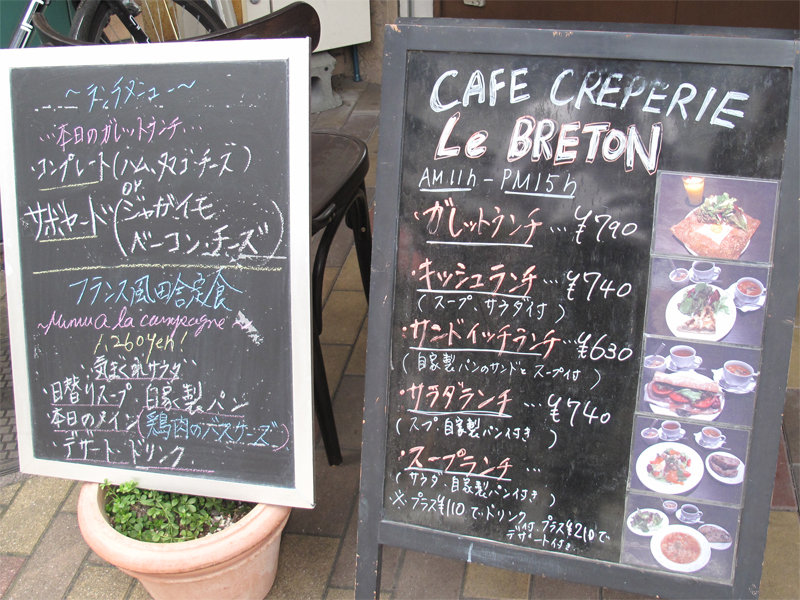 ～ランチメニュー～
…本日のガレットランチ…
コンプレート(ハム、タマゴ、チーズ)
or
サボヤード(ジャガイモ
ベーコン・チーズ)
フランス風田舎定食
～Menu a la campagne～
1,260yen!
気まぐれサラダ
日替りスープ 自家製パン
本日のメイン(鶏肉のバスケーズ)
デザート・ドリンク
CAFE CREPERIE
Le BRETON
AM11h - PM15h
・ガレットランチ…¥790
・キッシュランチ…¥740
(スープ、サラダ付)
・サンドイッチランチ…¥630
(自家製パンのサンドとスープ付)
・サラダランチ…¥740
(スープ 自家製パン付き)
・スープランチ…
(サラダ、自家製パン付き)
※プラス¥110でドリンク
付、プラス¥210で
デザート付き